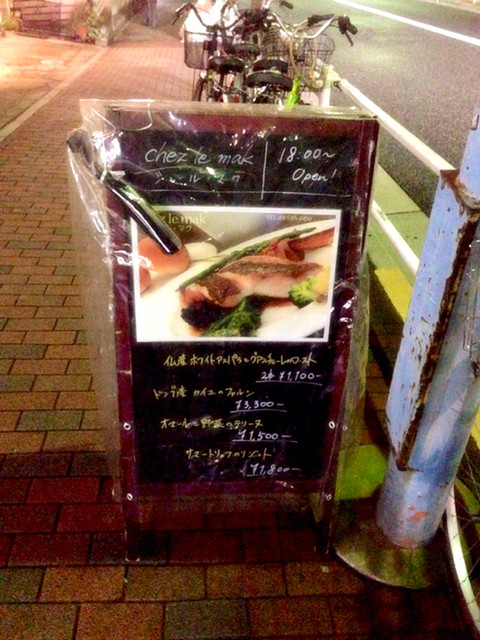 chez le mak
シェ・ル・マク
18:00～
Open!
ez le mak
・マク
TEL
仏産 ホワイトアスパラと
ロースト
2本 ¥1,100-
ドンブ産 カイユのファルシ
¥3,300-
オマールと野菜のテリーヌ
¥1,500-
サマートリュフのリゾット
¥1,800-